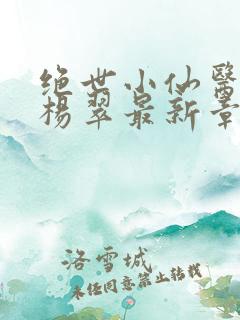 绝世小仙醫
楊翠最新章
洛雪城
未经同意禁止转载